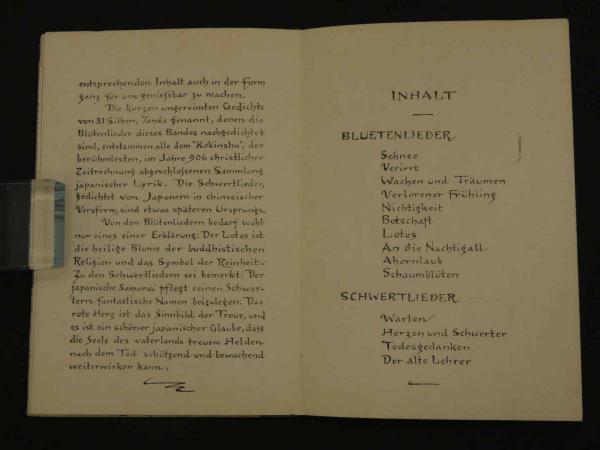 entsprechenden Inhalt auch in der Form
ganz für uns genießbar zu machen.
Die kurzen ungereimten Gedichte
von 31 Silben, Tanka genannt, denen die
Blütenlieder dieses Bandes nachgedichtet
sind, entstammen alle dem "Kokinshu", der
berühmtesten, im Jahre 906 christlicher
Zeitrechnung abgeschlossenen Sammlung
japanischer Lyrik. Die Schwertlieder,
gedichtet von Japanern in chinesischer
Versform, sind etwas späteren Ursprungs.
Von den Blütenliedern bedarf wohl
nur eines einer Erklärung: Der Lotos ist
die heilige Blume der buddhistischen
Religion und das Symbol der Reinheit.
Zu den Schwertliedern sei bemerkt: Der
japanische Samurai pflegt seinen Schwer-
tern fantastische Namen beizulegen. Das
rote Herz ist das Sinnbild der Treue, und
es ist ein schöner japanischer Glaube, dass
die Seele des vaterlands treuen Helden
nach dem Tod schützend und bewachend
weiterwirken kann.
INHALT
BLUETENLIEDER
Schnee
Verirrt
Wachen und Träumen
Verlorener Frühling
Nichtigkeit
Botschaft
Lotos
An die Nachtigall
Ahornlaub
Schaumblüten
SCHWERTLIEDER
Warten
Herzen und Schwerter
Todesgedanken
Der alte Lehrer